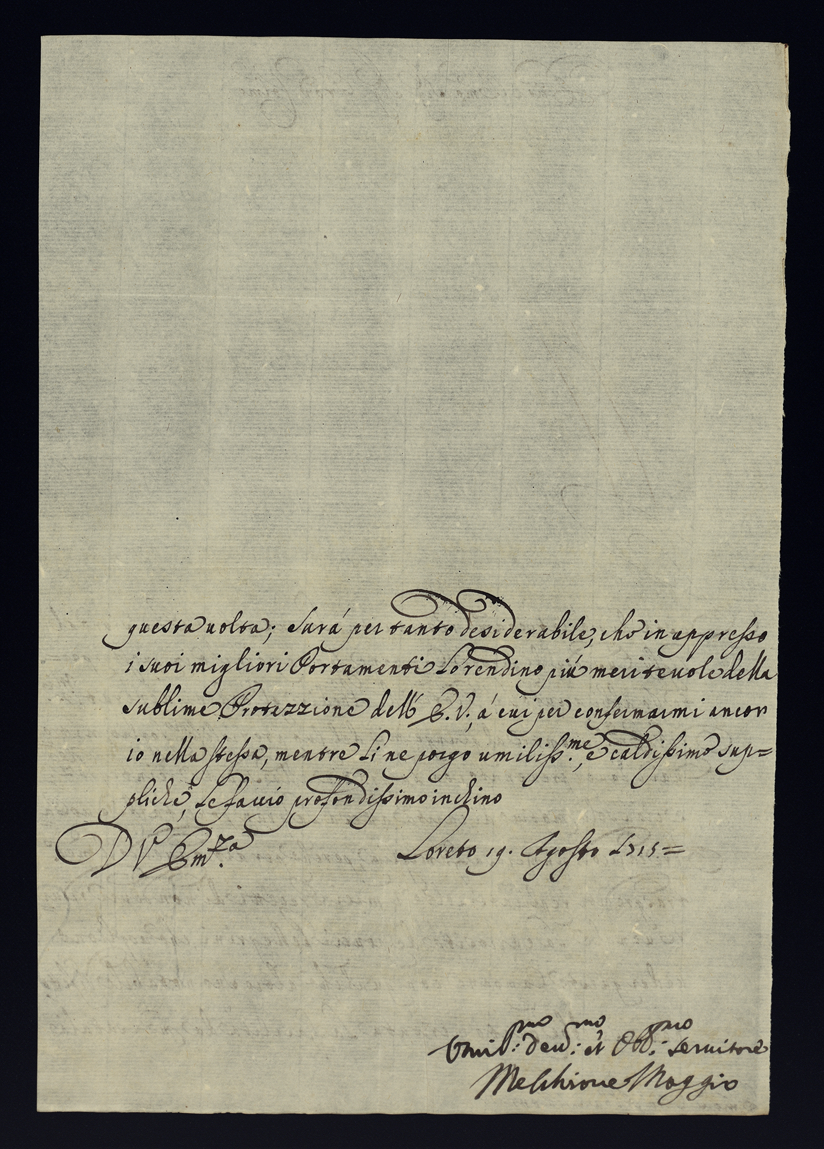 questa uolta; Sará per tanto desiderabile, che in appresso
i suoi migliori Portamenti Lo rendino piú meriteuole della
sublime Protezzione dell' E. V., á cui per confermarmi ancor
io nella stessa, mentre Li ne porgo umiliss.me, e caldissime sup=
pliche, Le faccio profondissimo inchino
D V Em.za Loreto 19. Agosto
Vmil:mo deu:mo et Obb:mo seruitore
Melchiorre Maggio